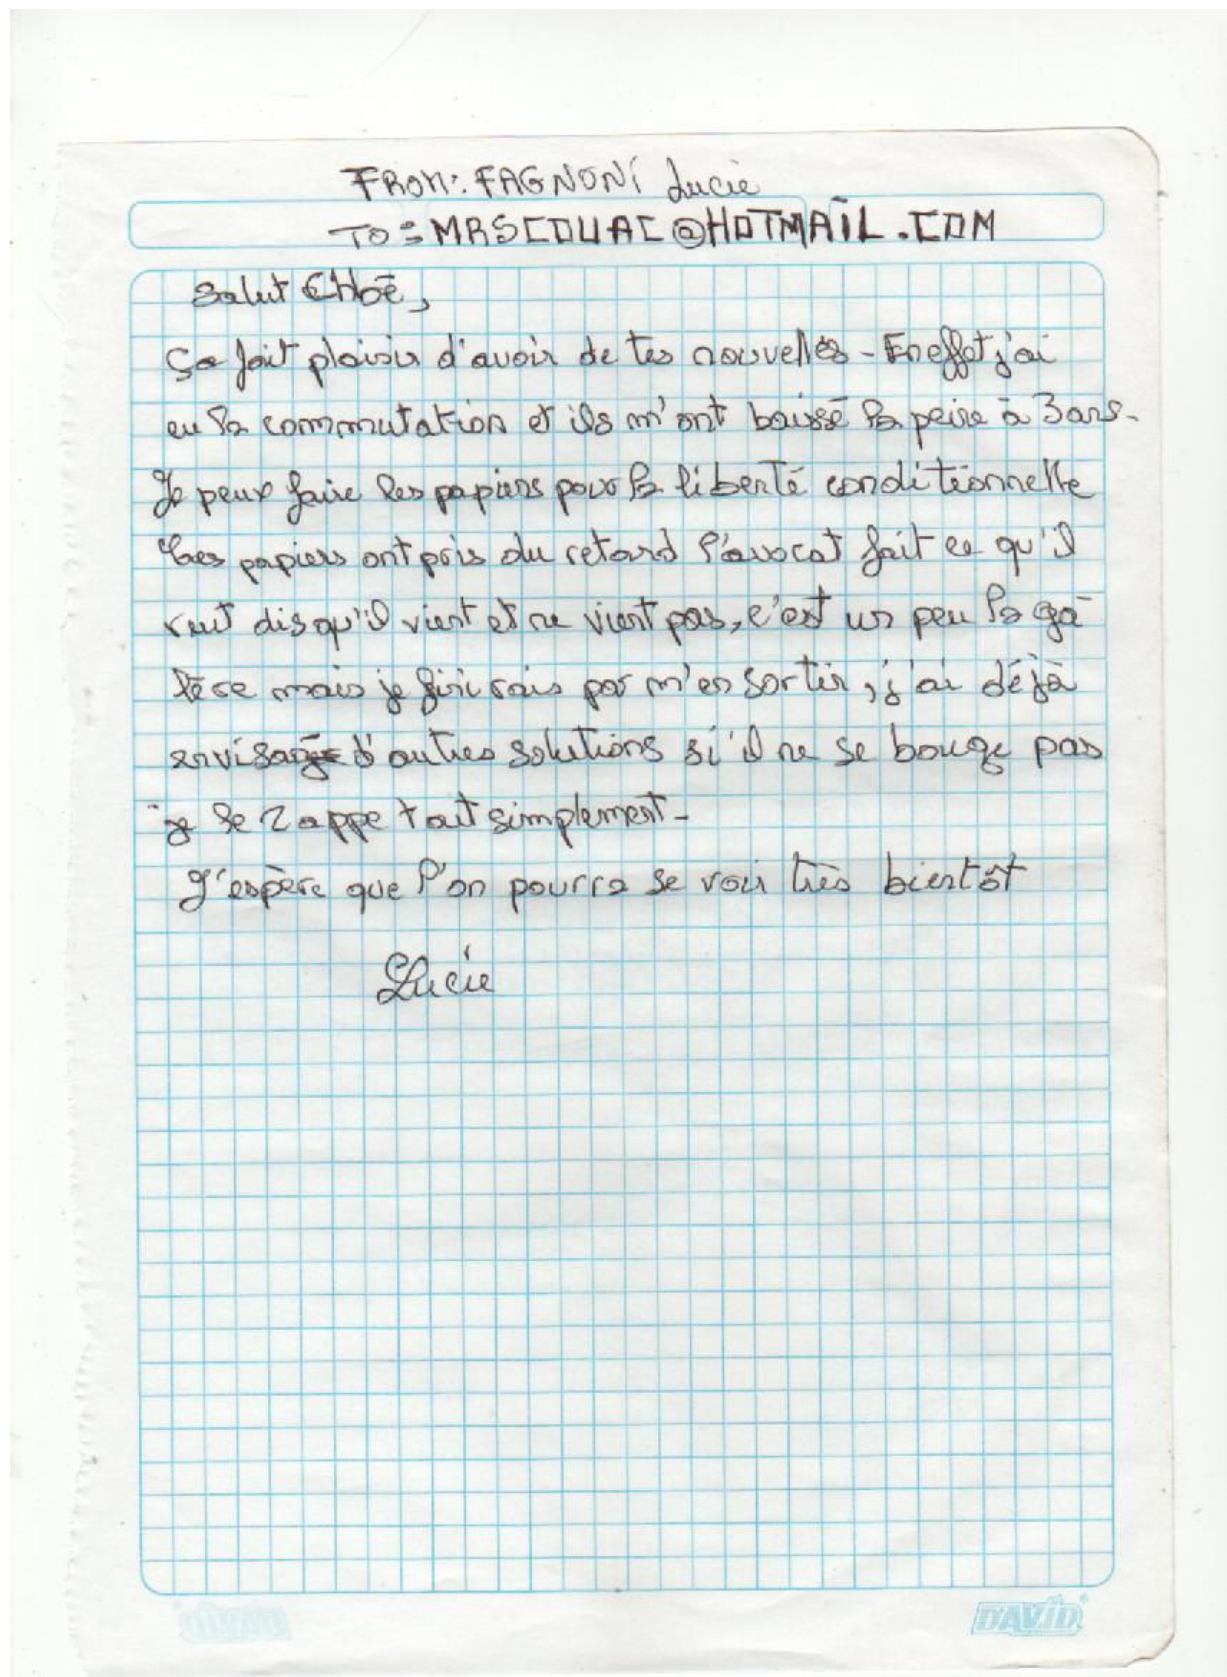 FROM: FAGNONI Lucie
TO: MRSCOUAC@HOTMAIL.COM
Salut Chloé,
Ça fait plaisir d'avoir de tes nouvelles - En effet j'ai
eu la commutation et ils m'ont baissé la peine à 3 ans -
Je peux faire les papiers pour la liberté conditionnelle
les papiers ont pris du retard l'avocat fait ce qu'il
veut dis qu'il vient et ne vient pas, c'est un peu la ga
lère mais je finirais par m'en sortir, j'ai déjà
envisage d'autres solutions si'il ne se bouge pas
je le zappe tout simplement -
J'espère que l'on pourra se voir très bientôt
Lucie
DAVID